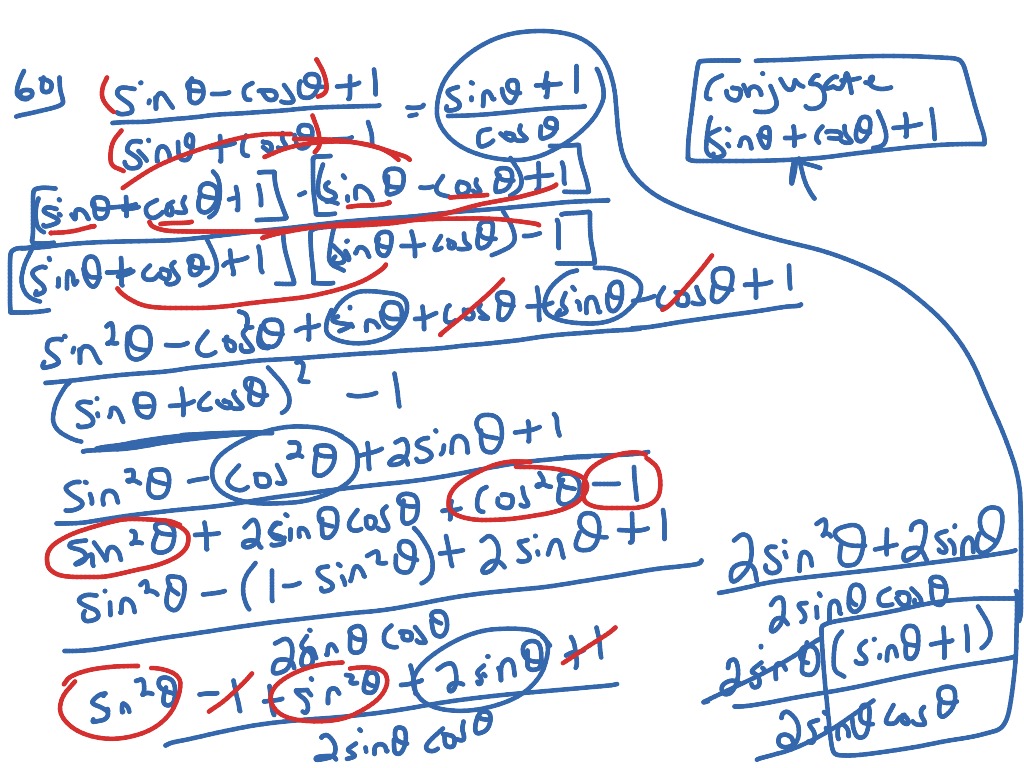 60) (sin θ - cos θ) + 1 / (sin θ + cos θ) - 1 = sin θ + 1 / cos θ
Conjugate
(sin θ + cos θ) + 1
[(sin θ + cos θ) + 1] · [(sin θ - cos θ) + 1]
[(sin θ + cos θ) + 1] [(sin θ + cos θ) - 1]
sin²θ - cos²θ + sin θ + cos θ + sin θ - cos θ + 1
(sin θ + cos θ)² - 1
sin²θ - cos²θ + 2 sin θ + 1
sin²θ + 2 sin θ cos θ + cos²θ - 1
sin²θ - (1 - sin²θ) + 2 sin θ + 1
2 sin θ cos θ
sin²θ - 1 + sin²θ + 2 sin θ + 1
2 sin θ cos θ
2 sin²θ + 2 sin θ
2 sin θ cos θ
2 sin θ (sin θ + 1)
2 sin θ cos θ